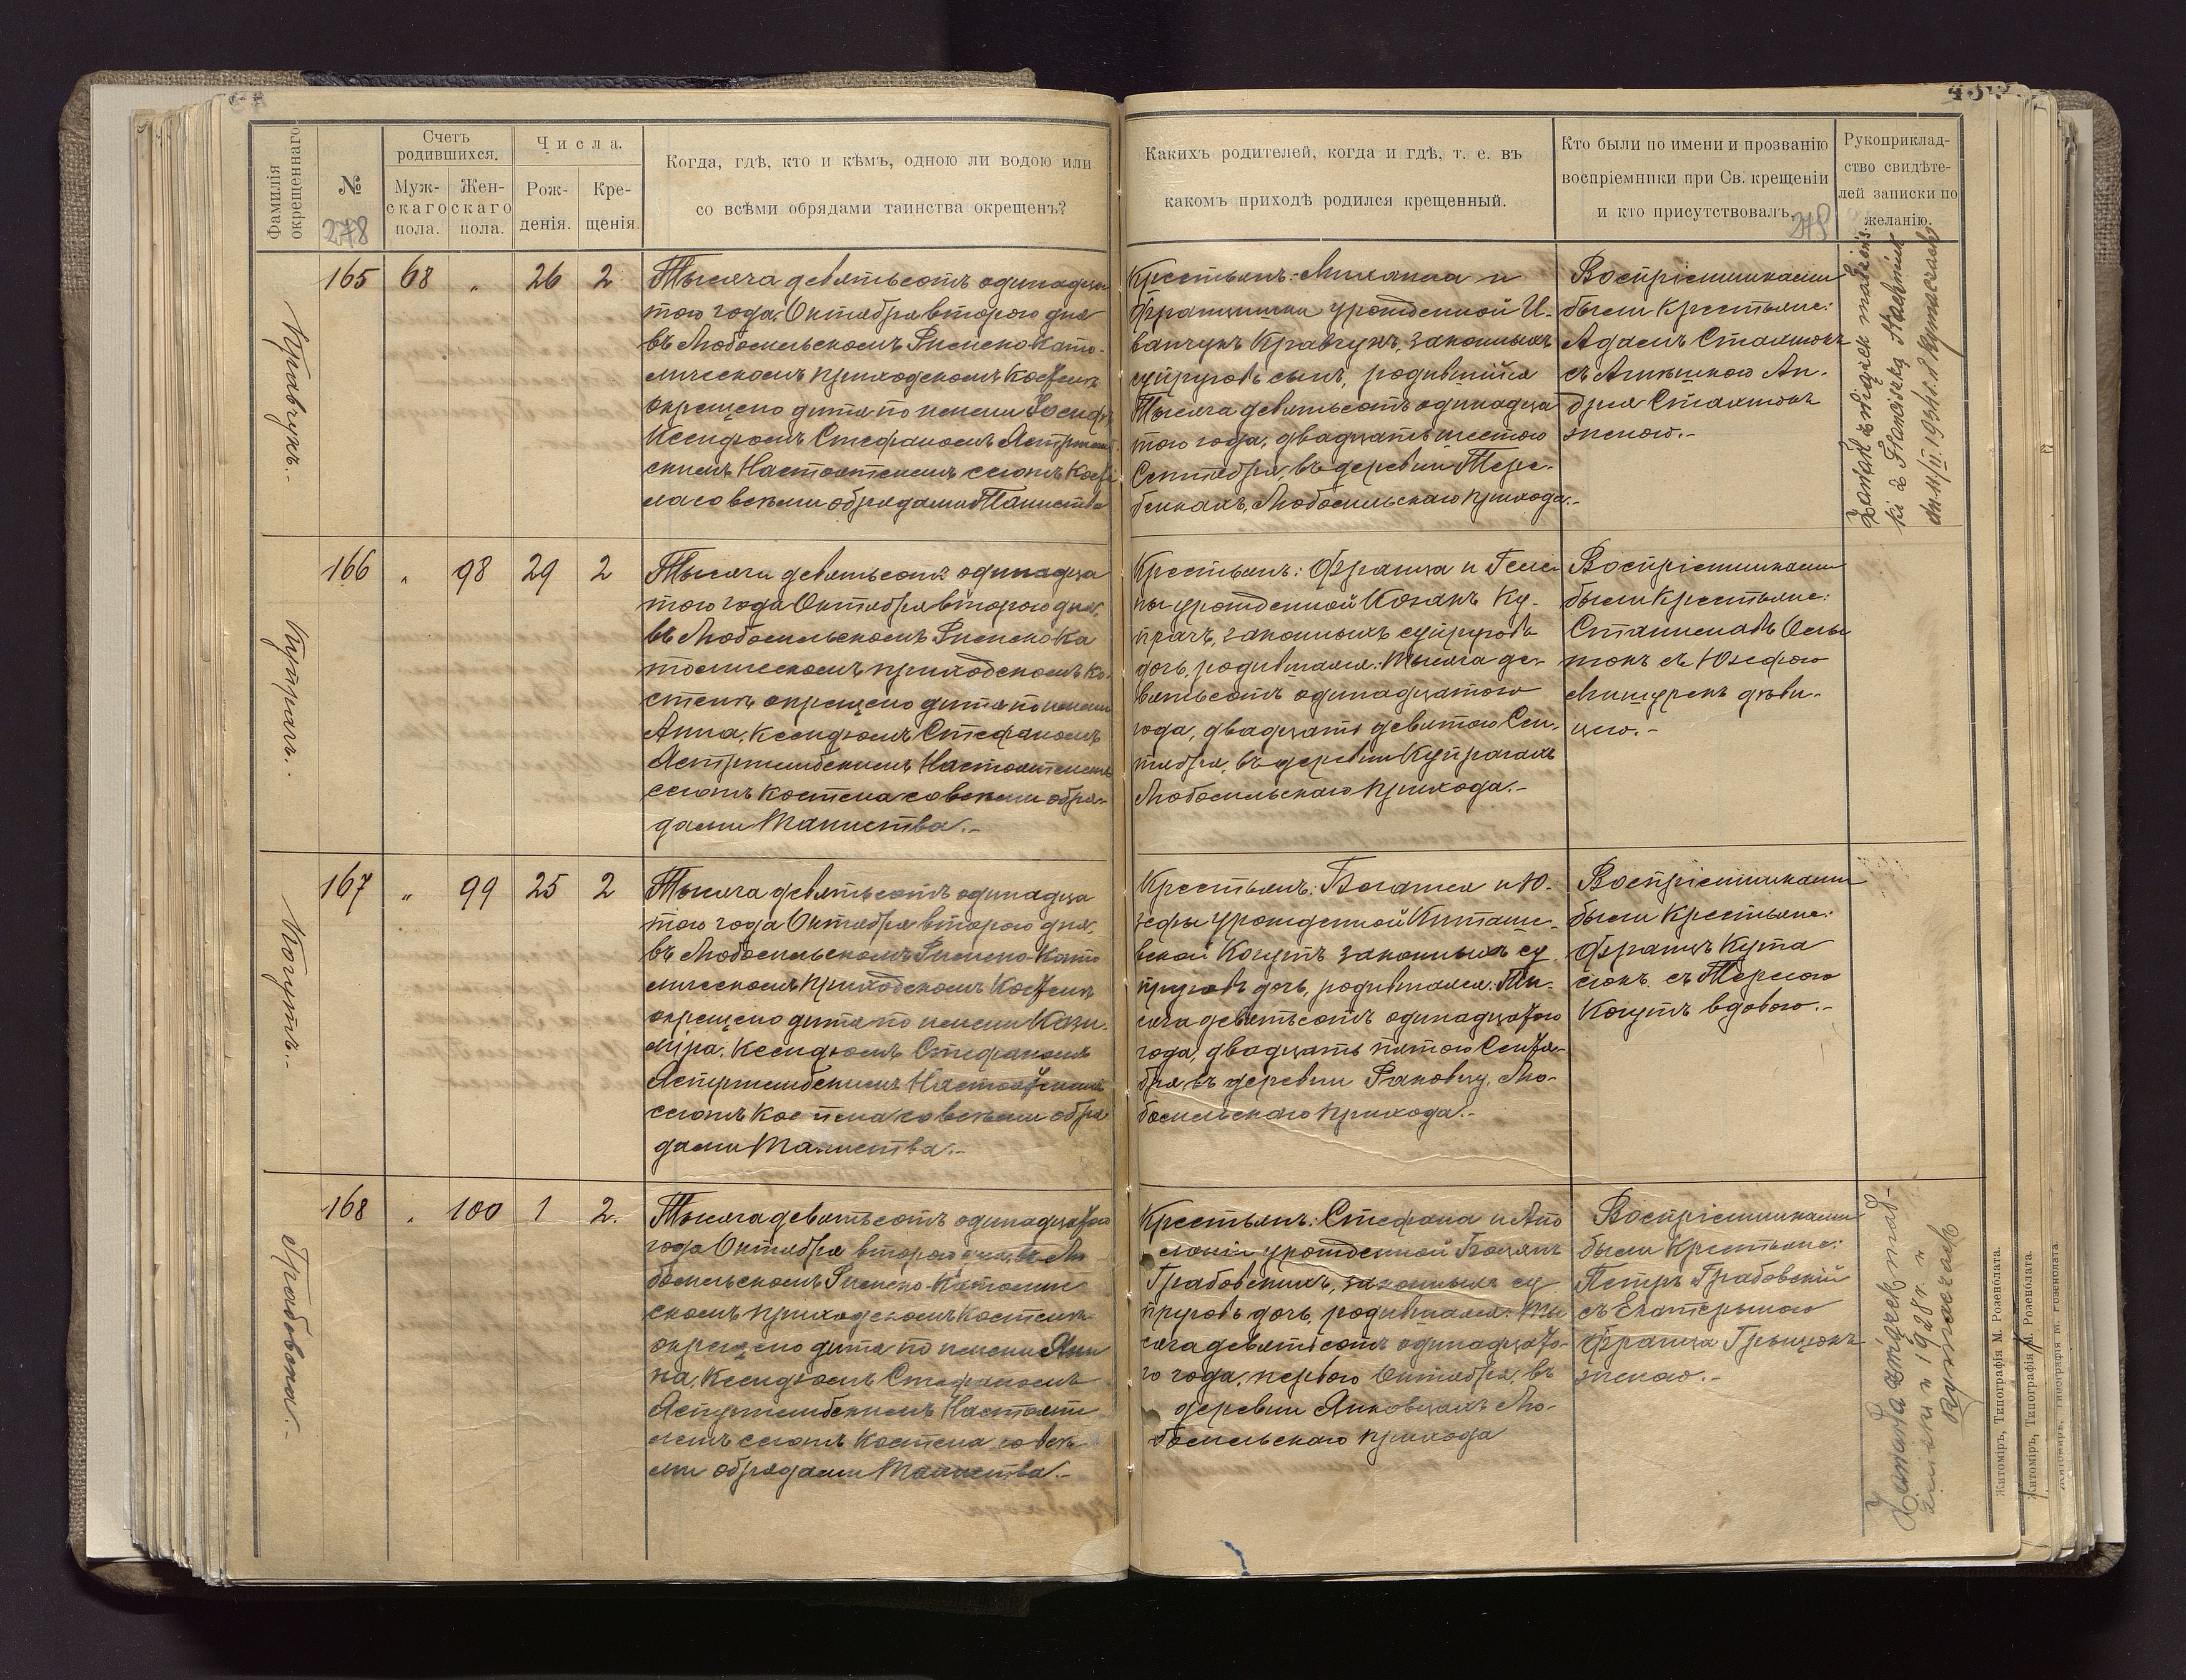 Фамилія окрещеннаго
№
278
Счетъ родившихся.
Муж-
скаго
пола.
Жен-
скаго
пола.
Числа.
Рож-
денія.
Кре-
щенія.
Когда, гдѣ, кто и кѣмъ, одною ли водою или
со всѣми обрядами таинства окрещенъ?
Какихъ родителей, когда и гдѣ, т. е. въ
какомъ приходѣ родился крещенный.
Кто были по имени и прозванію
воспріемники при Св. крещеніи
и кто присутствовалъ.
278
Рукоприклад-
ство свидѣте-
лей записки по
желанію.
Кравчукъ.-
165 68 „ 26 2
Тысяча девятьсотъ одинадца
того года Октября второго дня
въ Любомльскомъ Римско Като-
лическомъ приходскомъ Костелѣ
окрещено дитя по имени Іосифъ,
Ксендзомъ Стефаномъ Ястржемб-
скимъ Настоятелемъ сегожъ Косте
ла со всѣми обрядами Таинства
Крестьянъ: Михаила и
Францишки урожденной И-
ванчукъ Кравчукъ, законныхъ
супруговъ сынъ, родившійся
Тысяча девятьсотъ одинадца
того года, двадцать шестого
Сентября, въ деревни Тере-
бейкахъ, Любомльскаго прихода.-
Воспріемниками
были крестьяне:
Адамъ Стахнюкъ
съ Агнѣшкою Ан-
дрея Стахнюкъ
женою.-
Zawarł związek małżeńs
ki z Franciszką Stachniuk
Купрачъ.-
166 „ 98 29 2
Тысяча девятьсотъ одинадца
того года Октября второго дня,
въ Любомльскомъ Римско Ка
толическомъ приходскомъ Ко-
стелѣ окрещено дитя по имени
Анна, Ксендзомъ Стефаномъ
Ястржембскимъ Настоятелемъ
сегожъ костела со всѣми обря-
дами Таинства.-
Крестьянъ: Франца и Геле
ны урожденной Козакъ Ку-
прачъ, законныхъ супруговъ
дочь, родившаяся: Тысяча де-
вятьсотъ одинадцатого
года, двадцать девятого Сен-
тября, въ деревни Купрачахъ
Любомльскаго прихода.-
Воспріемниками
были Крестьяне:
Станиславъ
съ Юзефою
дѣви-
цею.-
Когутъ.-
167 „ 99 25 2
Тысяча девятьсотъ одинадца
того года Октября второго дня,
въ Любомльскомъ Римско-Като
лическомъ приходскомъ Костелѣ
окрещено дитя по имени Кази-
мира, Ксендзомъ Стефаномъ
Ястржембскимъ Настоятелемъ
сегожъ Костела со всѣми обря
дами Таинства.-
Крестьянъ: и Ю-
зефы урожденной
Когутъ законныхъ су
пруговъ дочь, родившаяся: Ты-
сяча девятьсотъ одинадцатого
года, двадцать пятого Сентя-
бря въ деревни Раковцу, Лю-
бомльскаго прихода.-
Воспріемниками
были Крестьяне:
Францъ Кута
сюкъ съ Тересою
Когутъ вдовою.-
Грабовска.-
168 „ 100 1 2.
Тысяча девятьсотъ одинадцатого
года Октября второго дня въ Лю
бомльскомъ Римско-Католиче
скомъ приходскомъ Костелѣ
окрещено дитя по имени Яни
на, Ксендзомъ Стефаномъ
Ястржембскимъ Настояте
лемъ сегожъ Костела со всѣ-
ми обрядами Таинства.-
Крестьянъ: Стефана и Апо
лоніи урожденной
Грабовскихъ, законныхъ су
пруговъ дочь, родившаяся: Ты
сяча девятьсотъ одинадцато-
го года, перваго Октября, въ
деревни Янковцахъ Лю-
бомльскаго прихода
Воспріемниками
были Крестьяне:
Петръ Грабовскій
съ Екатериною
Франца Грыцюкъ
женою.-
Zawarła związek mał-
żeński w 1928 r. w
Rymaczach
Житоміръ, Типографія М. Розенблата.
Житоміръ, Типографія М. Розенблата.
Житоміръ, Типографія М. Розенблата.